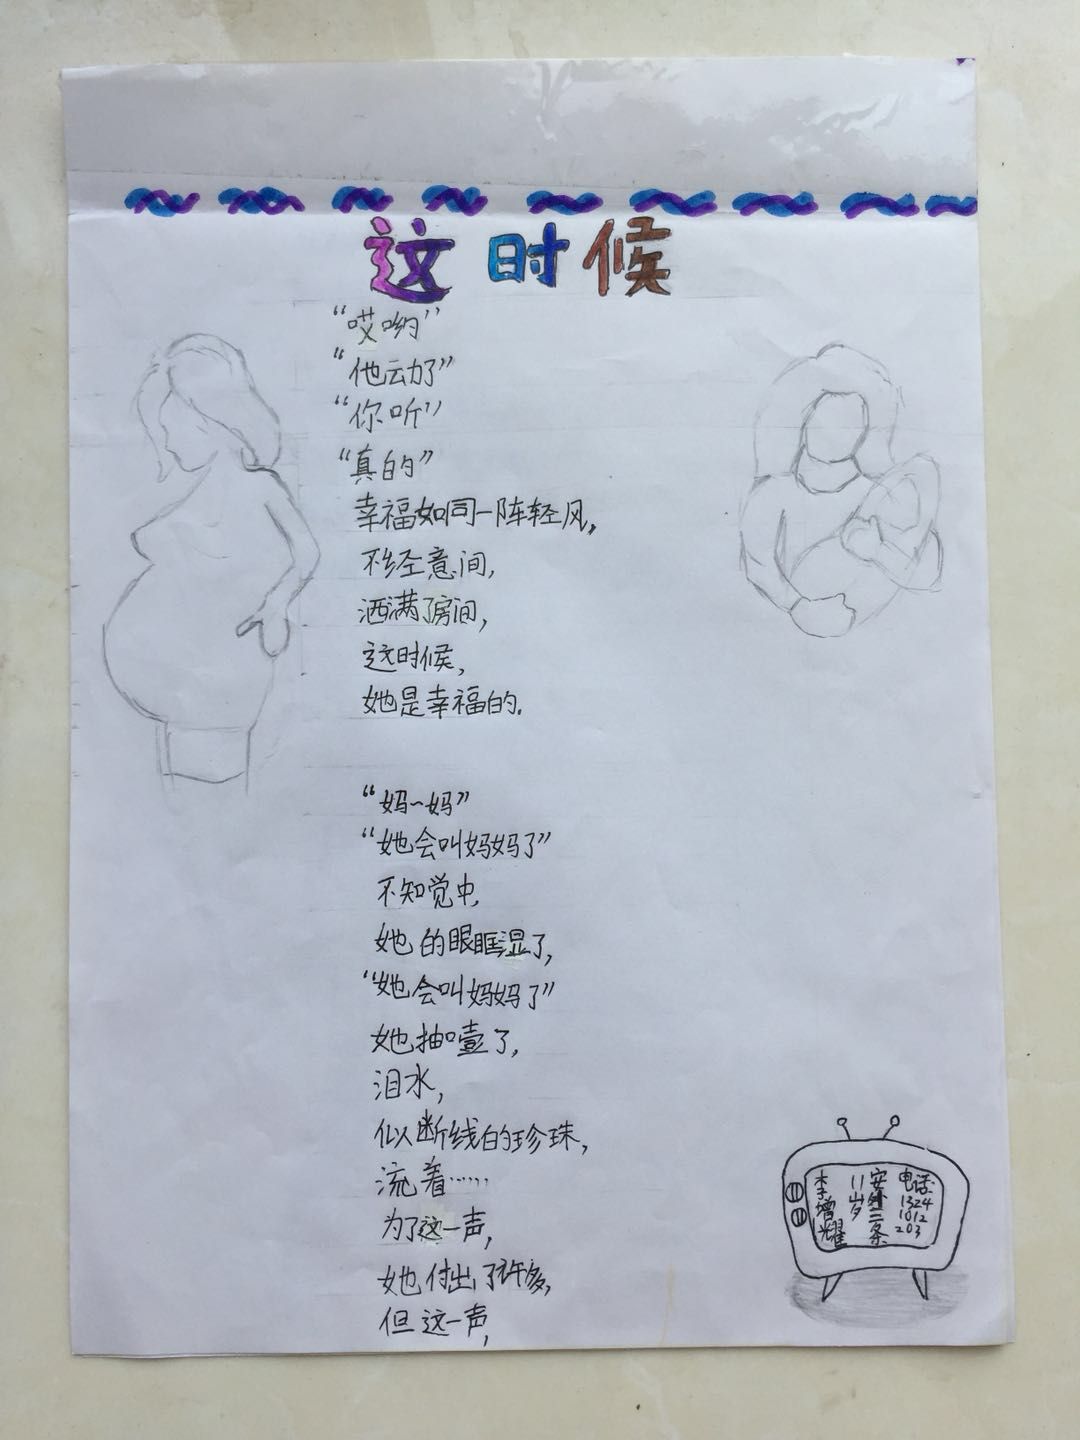 这时候
“哎哟”
“他云力了”
“你听”
“真的”
幸福如同一阵轻风,
不经意间,
洒满了房间,
这时候,
她是幸福的.
“妈~妈”
“她会叫妈妈了”
不知觉中,
她的眼眶湿了,
“她会叫妈妈了”
她抽噎了,
泪水,
似断线的珍珠,
流着……
为了这一声,
她付出了许多,
但这一声,
李增耀
11岁
安外三条
电话
1324
1012
203